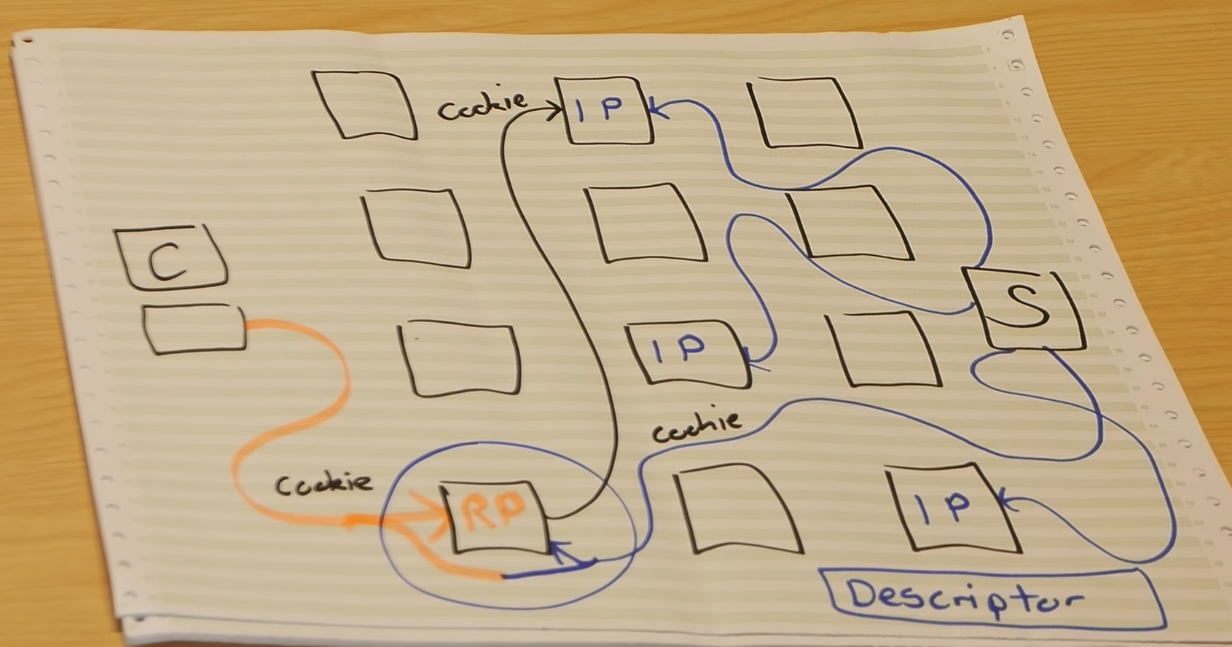 cookie
IP
C
S
IP
cookie
cookie
RP
IP
Descriptor